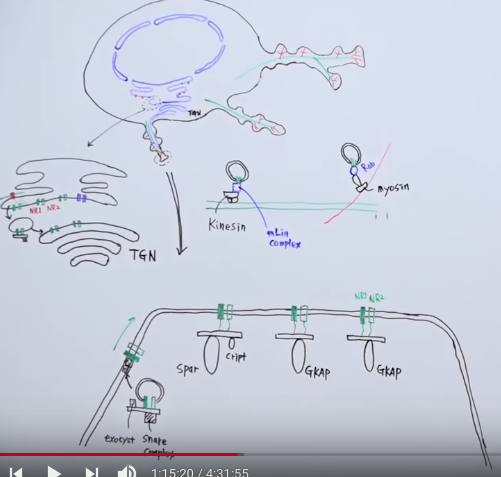 TGN
NR1 NR2
TGN
Rab
myosin
Kinesin
mLin
complex
NR1 NR2
Spar
cript
GKAP
GKAP
exocyst Snare
complex
1:15:20 / 4:31:55